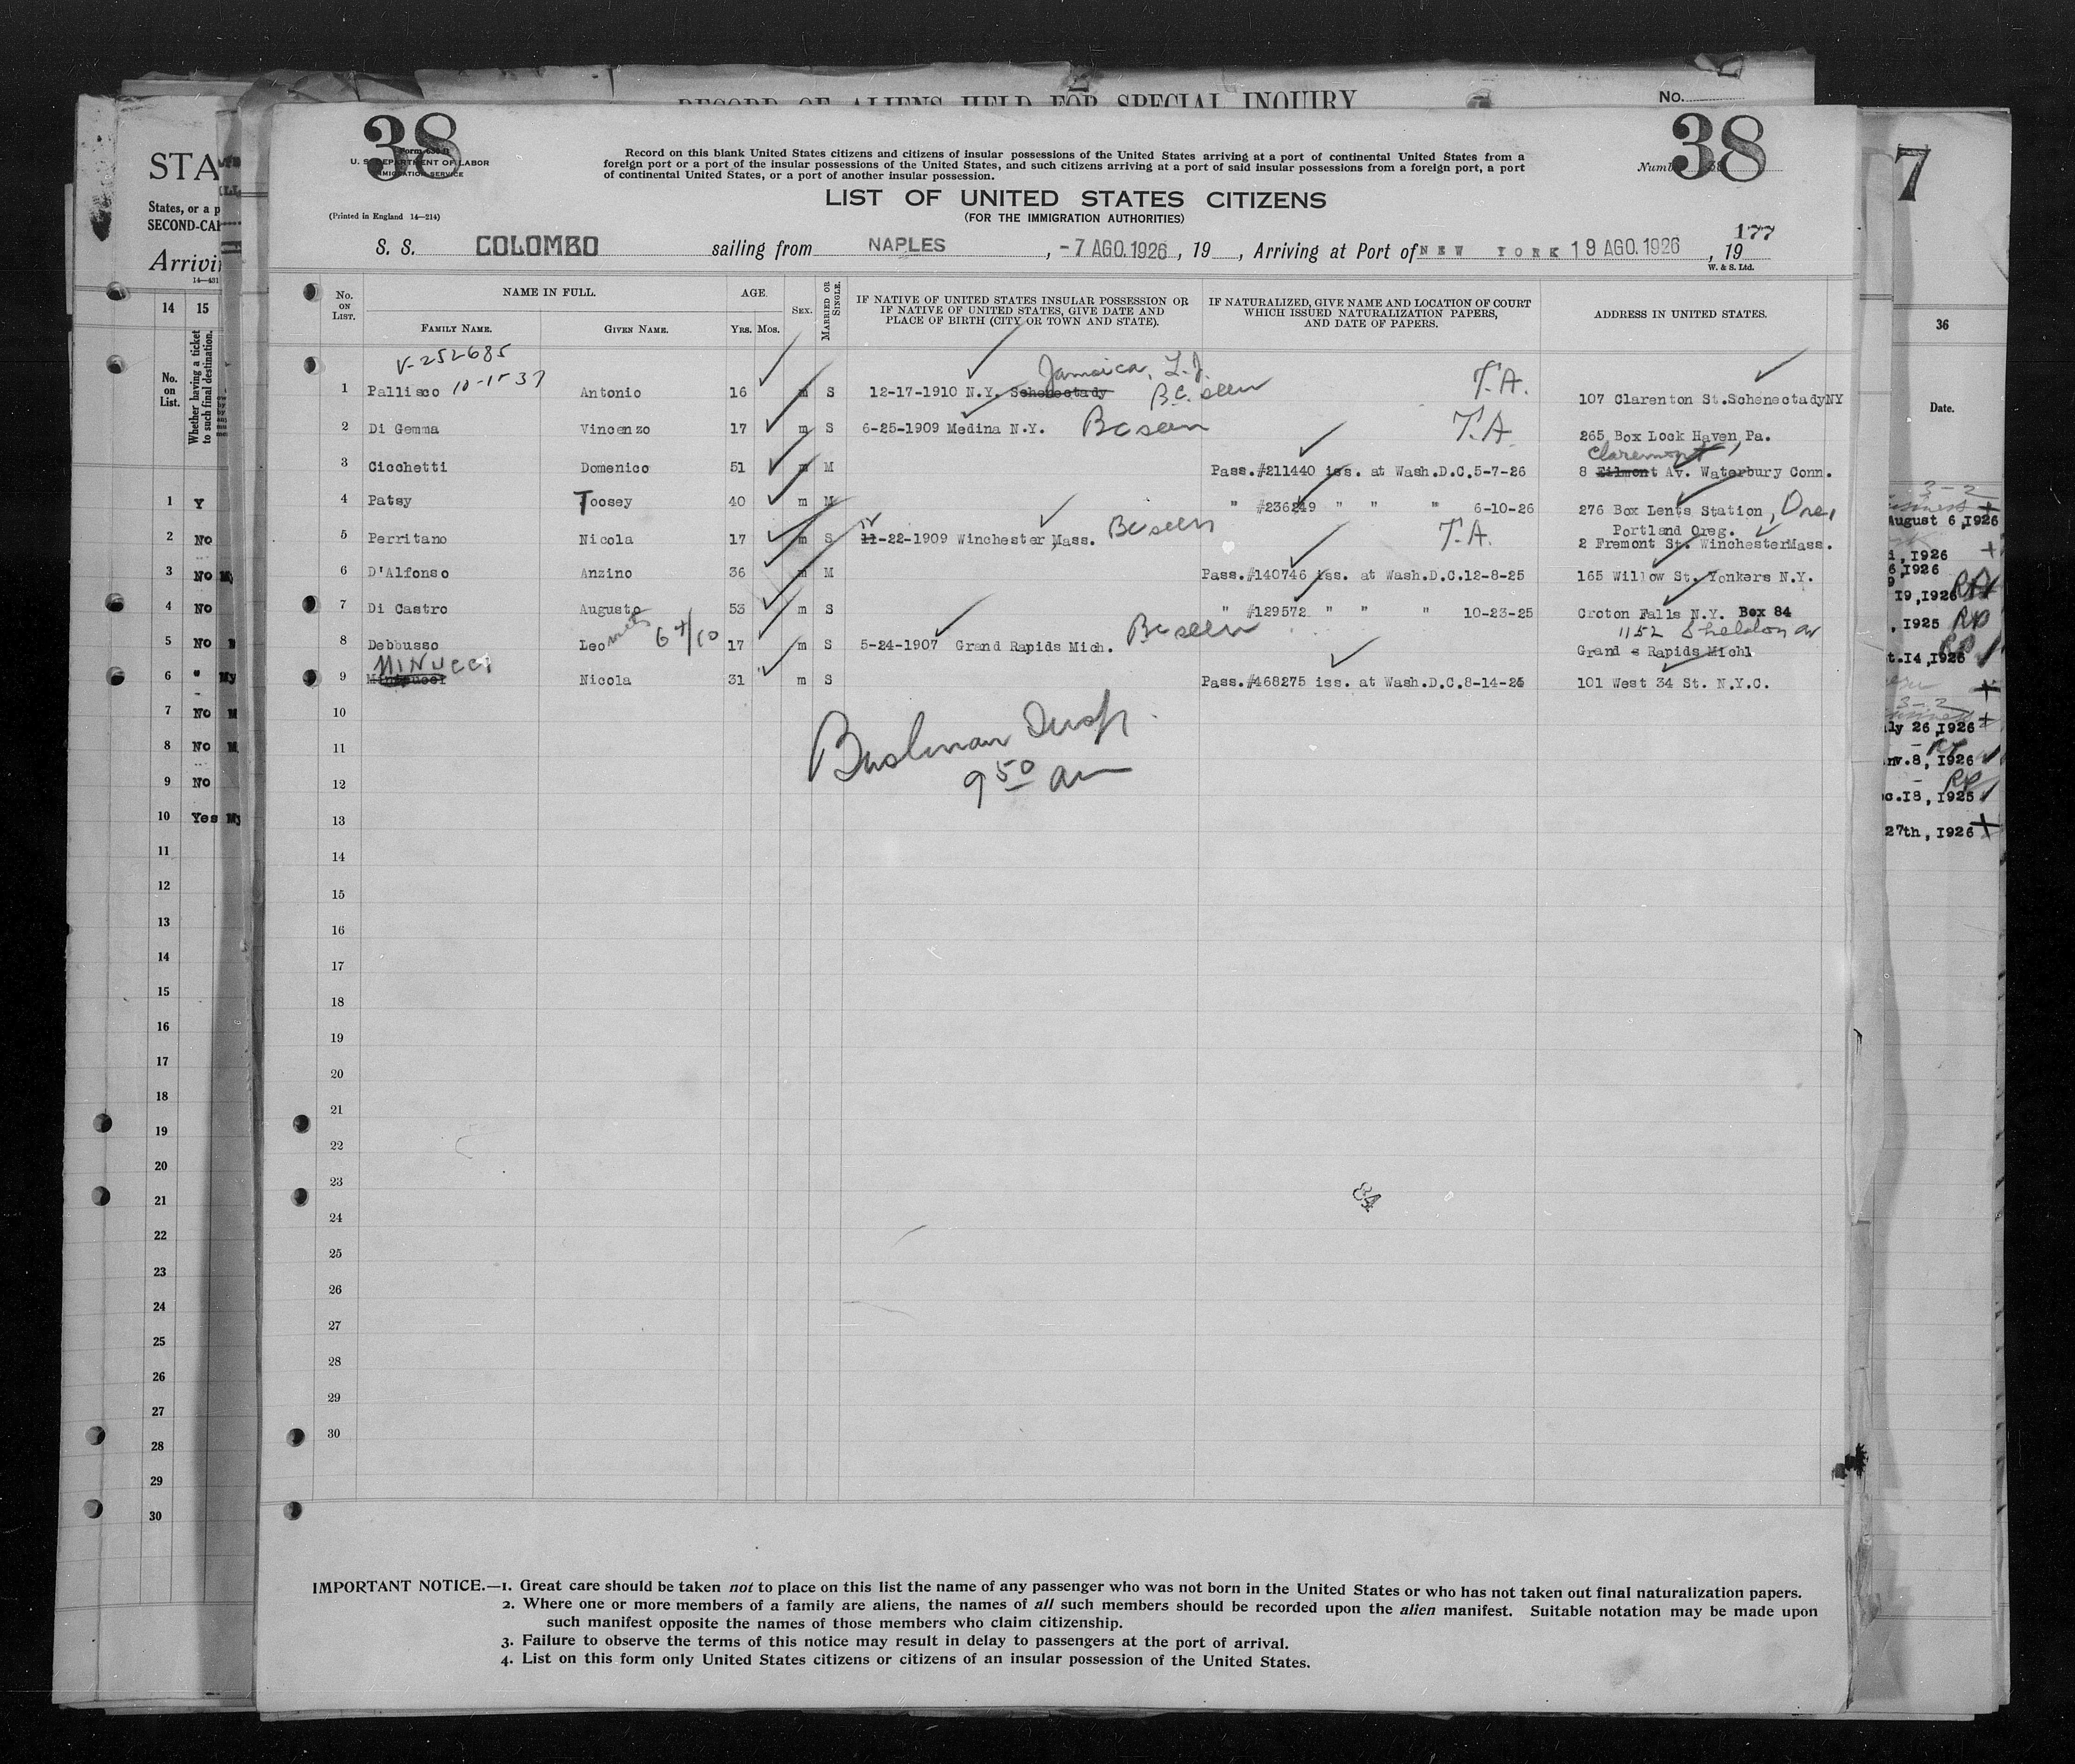 RECORD OF ALIENS HELD FOR SPECIAL INQUIRY
No.
38
38
Form 630 B
U. S. DEPARTMENT OF LABOR
IMMIGRATION SERVICE
Record on this blank United States citizens and citizens of insular possessions of the United States arriving at a port of continental United States from a
foreign port or a port of the insular possessions of the United States, and such citizens arriving at a port of said insular possessions from a foreign port, a port
of continental United States, or a port of another insular possession.
LIST OF UNITED STATES CITIZENS
(FOR THE IMMIGRATION AUTHORITIES)
(Printed in England 14—214)
177
S. S. COLOMBO sailing from NAPLES, -7 AGO.1926, 19 , Arriving at Port of NEW YORK 19 AGO.1926, 19
W. & S. Ltd.
No. ON LIST.
NAME IN FULL.
FAMILY NAME. GIVEN NAME.
AGE.
Yrs. Mos.
SEX.
MARRIED OR SINGLE.
IF NATIVE OF UNITED STATES INSULAR POSSESSION OR
IF NATIVE OF UNITED STATES, GIVE DATE AND
PLACE OF BIRTH (CITY OR TOWN AND STATE).
IF NATURALIZED, GIVE NAME AND LOCATION OF COURT
WHICH ISSUED NATURALIZATION PAPERS,
AND DATE OF PAPERS.
ADDRESS IN UNITED STATES.
V-252685
10-15-37
Jamaica, L.I.
1 Pallisco Antonio 16 m S 12-17-1910 N.Y. Schenectady B.C. seen T.A. 107 Clarenton St.SchenectadyNY
2 Di Gemma Vincenzo 17 m S 6-25-1909 Medina N.Y. BC seen T.A. 265 Box Lock Haven Pa.
Claremont
3 Cicchetti Domenico 51 m M Pass.#211440 iss. at Wash.D.C.5-7-26 8 Filmont Av. Waterbury Conn.
4 Patsy Toosey 40 m M " #236249 " " " 6-10-26 276 Box Lents Station, Ore,
Portland Oreg.
5 Perritano Nicola 17 m S 11-22-1909 Winchester Mass. BC seen T.A. 2 Fremont St. WinchesterMass.
6 D'Alfonso Anzino 36 m M Pass.#140746 iss. at Wash.D.C.12-8-25 165 Willow St. Yonkers N.Y.
7 Di Castro Augusto 53 m S " #129572 " " " 10-23-25 Croton Falls N.Y. Box 84
1152 Sheldon av
8 Debbusso Leo 17 m S 5-24-1907 Grand Rapids Mich. BC seen Grand Rapids Mich
MINUCCI
9 Minicucci Nicola 31 m S Pass.#468275 iss. at Wash.D.C.8-14-25 101 West 34 St. N.Y.C.
10
11
12
9 50 am
13
14
15
16
17
18
19
20
21
22
23
84
24
25
26
27
28
29
30
IMPORTANT NOTICE.—1. Great care should be taken not to place on this list the name of any passenger who was not born in the United States or who has not taken out final naturalization papers.
2. Where one or more members of a family are aliens, the names of all such members should be recorded upon the alien manifest. Suitable notation may be made upon
such manifest opposite the names of those members who claim citizenship.
3. Failure to observe the terms of this notice may result in delay to passengers at the port of arrival.
4. List on this form only United States citizens or citizens of an insular possession of the United States.
STA
States, or a p
SECOND-CA
Arrivi
14 15
No. on List.
Whether having a ticket
to such final destination.
1 Y
2 No
3 No
4 No
5 No
6 "
7 No M
8 No M
9 No
10 Yes My
11
12
13
14
15
16
17
18
19
20
21
22
23
24
25
26
27
28
29
30
7
36
Date.
3-2
August 6,1926
1, 1926
6,1926
19,1926
, 1925
t.14,1926
3-2
ly 26,1926
nv.8, 1926
c.18, 1925
27th, 1926